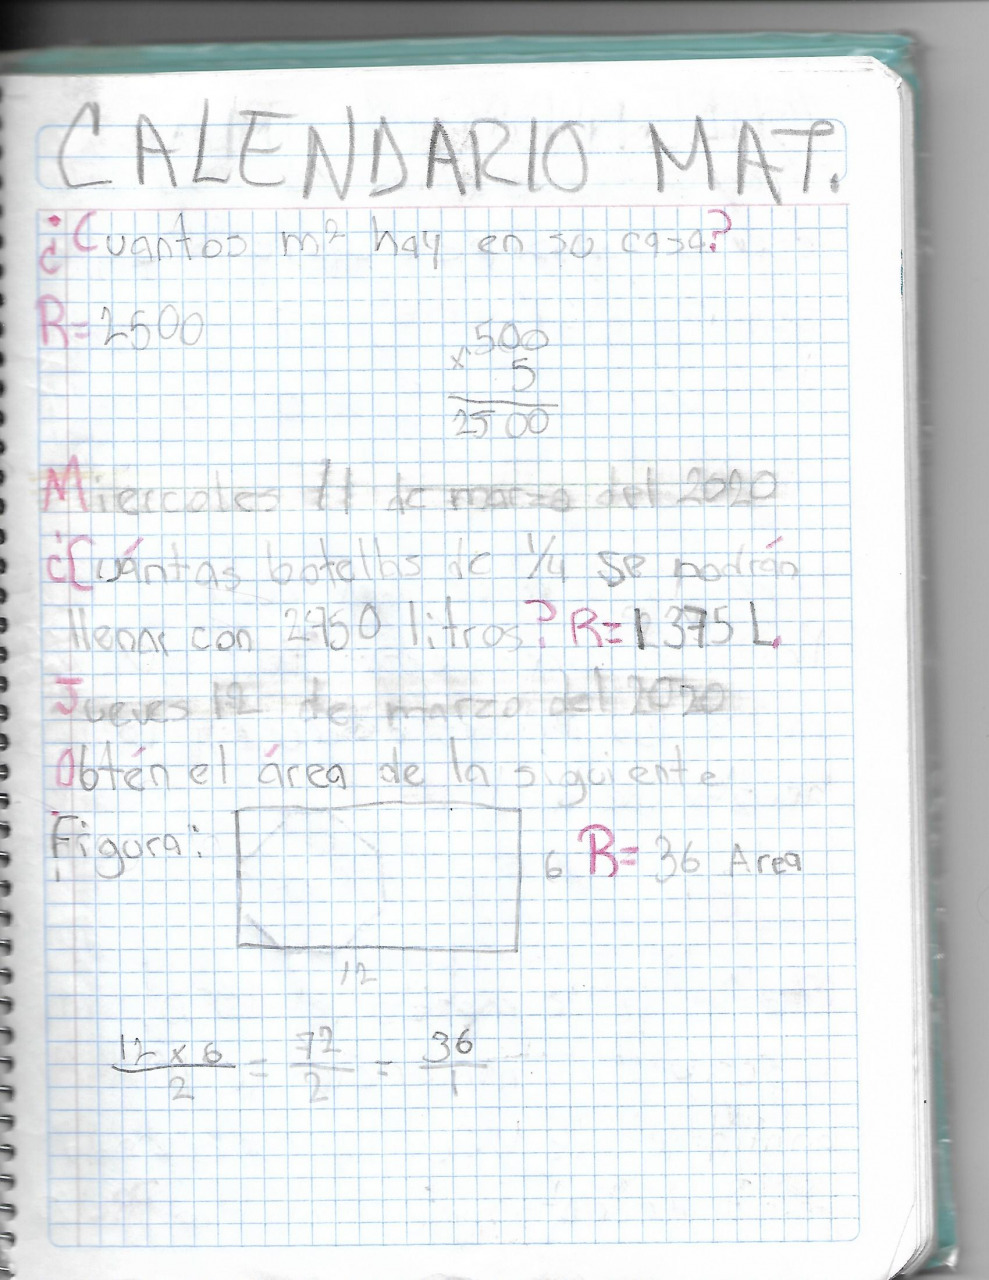 CALENDARIO MAT.
¿Cuantos m² hay en su casa?
R= 2500
500
x 5
2500
Miercoles 11 de marzo del 2020
¿Cuántas botellas de 1/4 se podrán
llenar con 2750 litros? R= 1375 L.
Jueves 12 de marzo del 2020
Obtén el área de la siguiente
Figura:
6 R= 36 Area
12
12 x 6 / 2 = 72 / 2 = 36 / 1